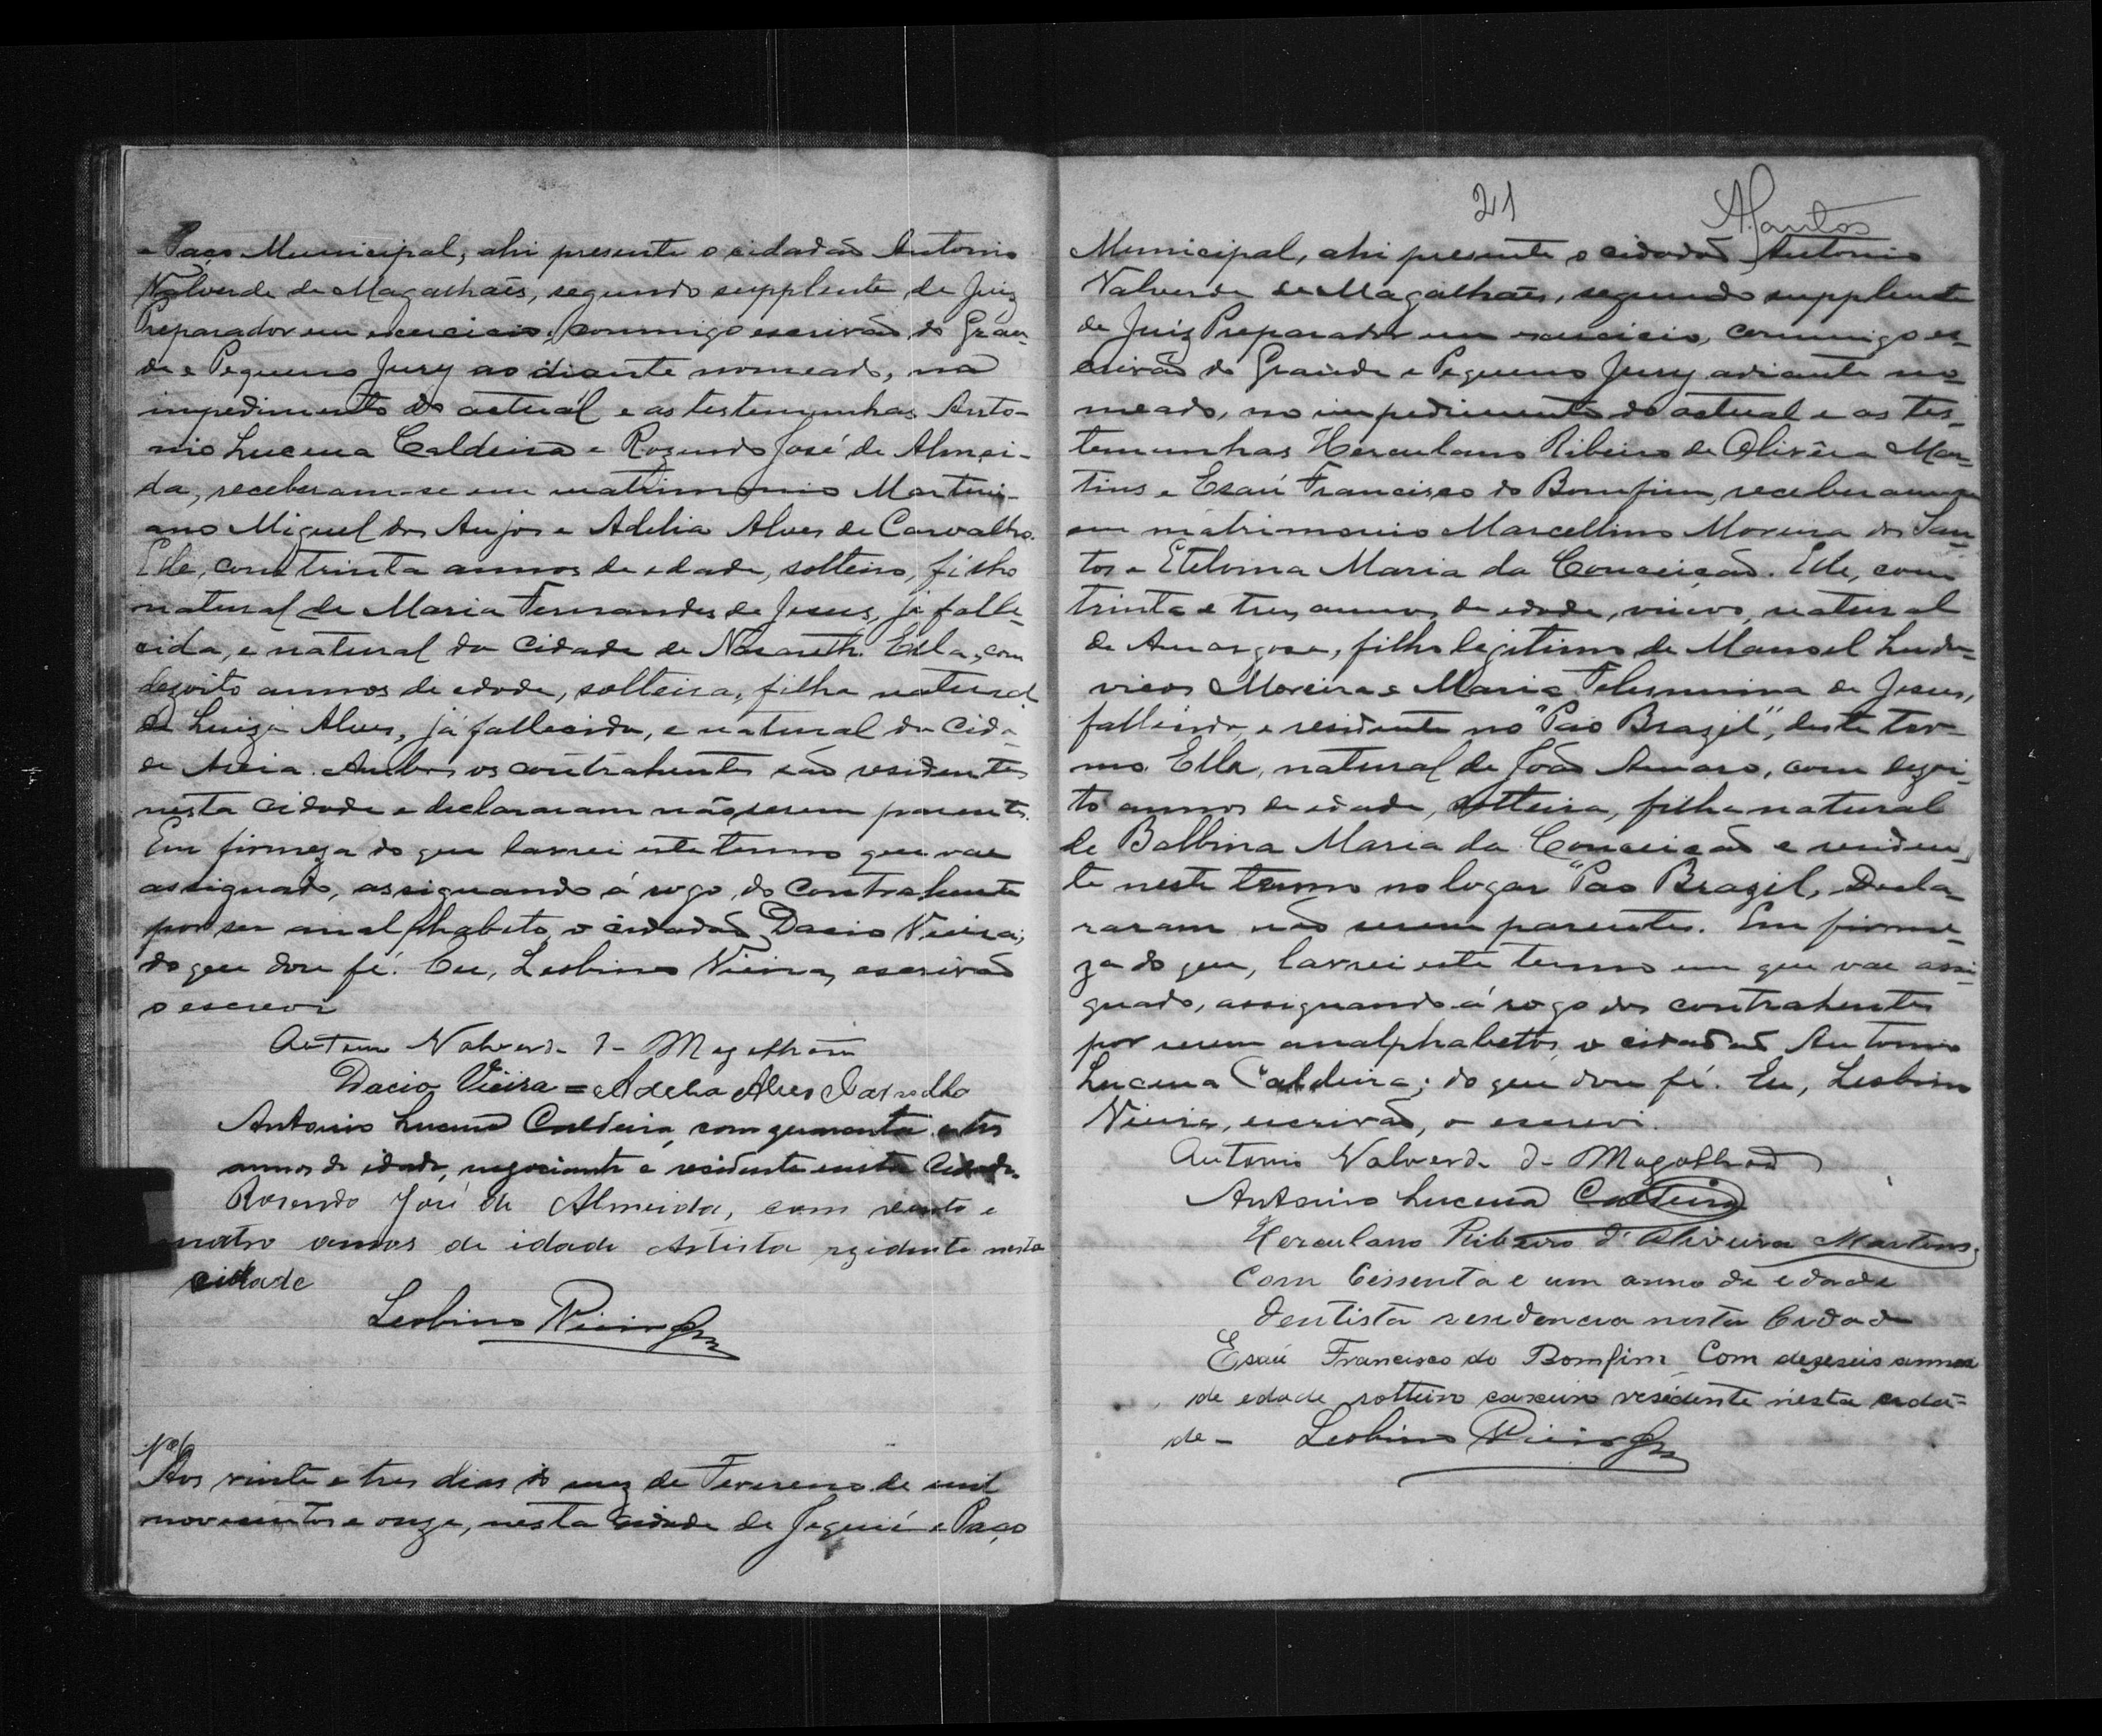 e Paço Municipal, ahi presente o cidadão Antonio
Valverde de Magalhães, segundo supplente de Juiz
Preparador em exercicio, commigo escrivão do Gran-
de e Pequeno Jury ao diante nomeado, no
impedimento do actual e as testemunhas Anto-
nio Lucena Caldeira e Rozendo José de Almei-
da, receberam-se em matrimonio Martini-
ano Miguel dos Anjos e Adelia Alves de Carvalho.
Elle, com trinta annos de edade, solteiro, filho
natural de Maria Fernandes de Jesus, já falle-
cida, e natural da Cidade de Nazareth. Ella, com
dezoito annos de edade, solteira, filha natural
de Luiza Alves, já fallecida, e natural da Cida-
de Areia. Ambos os contrahentes são residentes
nesta Cidade e declararam não serem parentes.
Em firmeza do que lavrei este termo que vae
assignado, assignando á rogo do Contrahente
por ser analphabeto, o cidadão Dacio Vieira;
do que dou fé. Eu, Lesbino Vieira, escrivão
o escrevi
Antonio Valverde de Magalhães
Dacio Vieira = Adelia Alves Carvalho
Antonio Lucena Caldeira, com quarenta e tres
annos de idade, negociante e residente nesta Cidade.
Rosendo José de Almeida, com vento e
quatro annos de idade Artista rezidente nesta
cidade
Lesbino Vieira
Nº
Aos vinte e tres dias do mez de Fevereiro de mil
novecentos e onze, nesta Cidade de Jequié e Paço
21
ASantos
Municipal, ahi presente o cidadão Antonio
Valverde de Magalhães, segundo supplente
de Juiz Preparador em exercicio, commigo es-
crivão do Grande e Pequeno Jury adiante no-
meado, no impedimento do actual e as tes-
temunhas Herculano Ribeiro de Olivêra Mar-
tins e Esaú Francisco do Bomfim, receberam-se
em matrimonio Marcellino Moreira dos San-
tos e Etelvina Maria da Conceição. Elle, com
trinta e tres annos de edade, viuvo, natural
de Amargosa, filho legitimo de Manoel Ludu-
vico Moreira e Maria Felismina de Jesus,
fallecida, e residente no "Pao Brazil", deste ter-
mo. Ella, natural de João Amaro, com dezoi-
to annos de edade, solteira, filha natural
de Balbina Maria da Conceição e residen-
te neste termo no logar "Pao Brazil. Decla-
raram não serem parentes. Em firme-
za do que, lavrei este termo em que vae assi-
gnado, assignando á rogo dos contrahentes
por serem analphabetos, o cidadão Antonio
Lucena Caldeira; do que dou fé. Eu, Lesbino
Vieira, escrivão, o escrevi.
Antonio Valverde de Magalhães
Antonio Lucena Caldeira
Herculano Ribeiro d'Oliveira Martins,
Com Cessenta e um anno de edade
dentista residencia nesta Cidade
Esaú Francisco do Bomfim Com dezeseis annos
de edade solteiro caxeiro residente nesta cida-
de - Lesbino Vieira